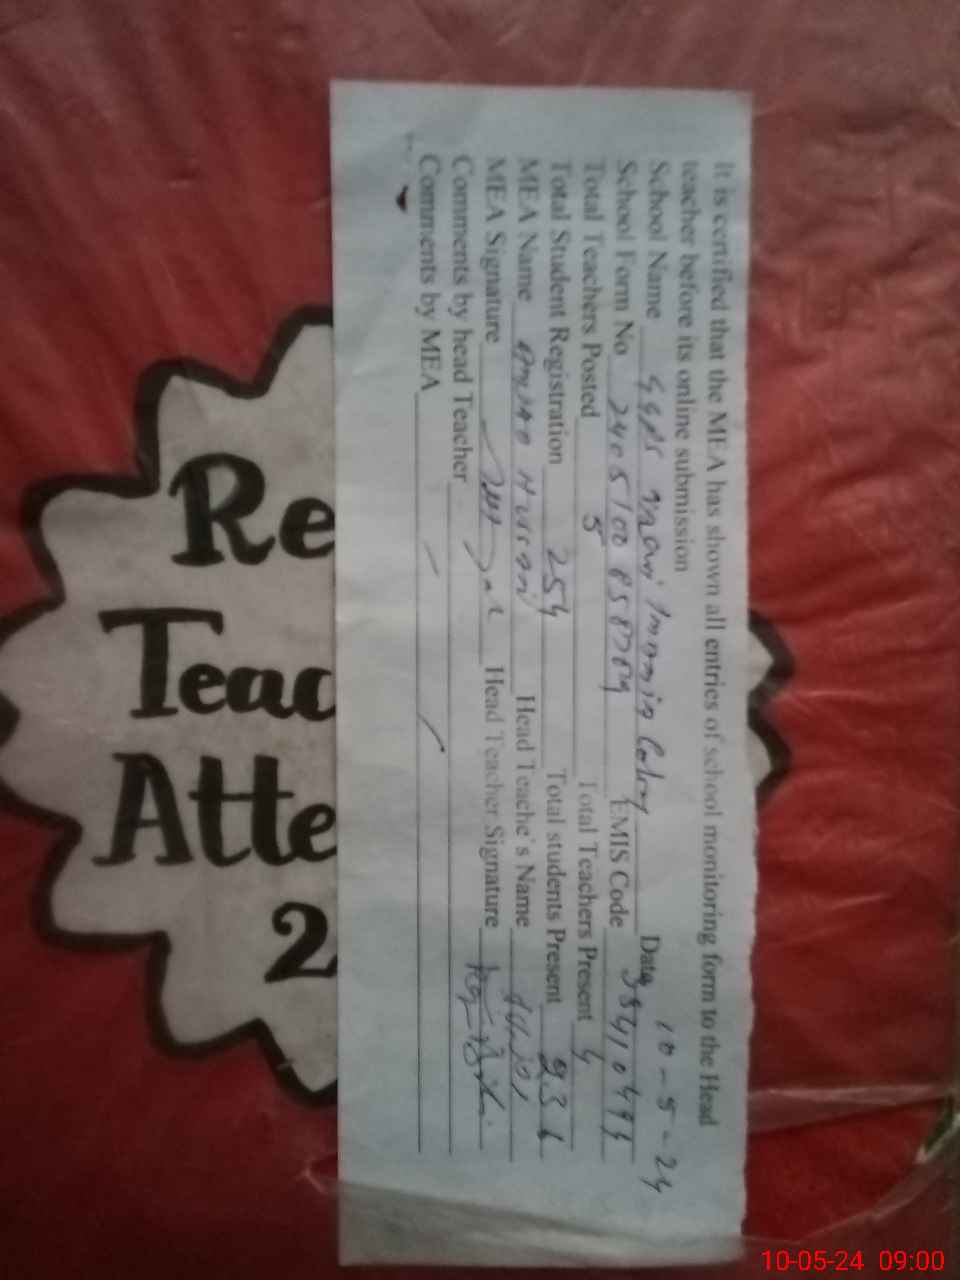 It is certified that the MEA has shown all entries of school monitoring form to the Head
teacher before its online submission
School Name GGPS Colony Date 10-5-24
School Form No EMIS Code
Total Teachers Posted 5 Total Teachers Present 4
Total Student Registration 254 Total students Present 236
MEA Name Hussain Head Teache's Name
MEA Signature Head Teacher Signature
Comments by head Teacher
Comments by MEA
Re
Teac
Atte
2
10-05-24 09:00